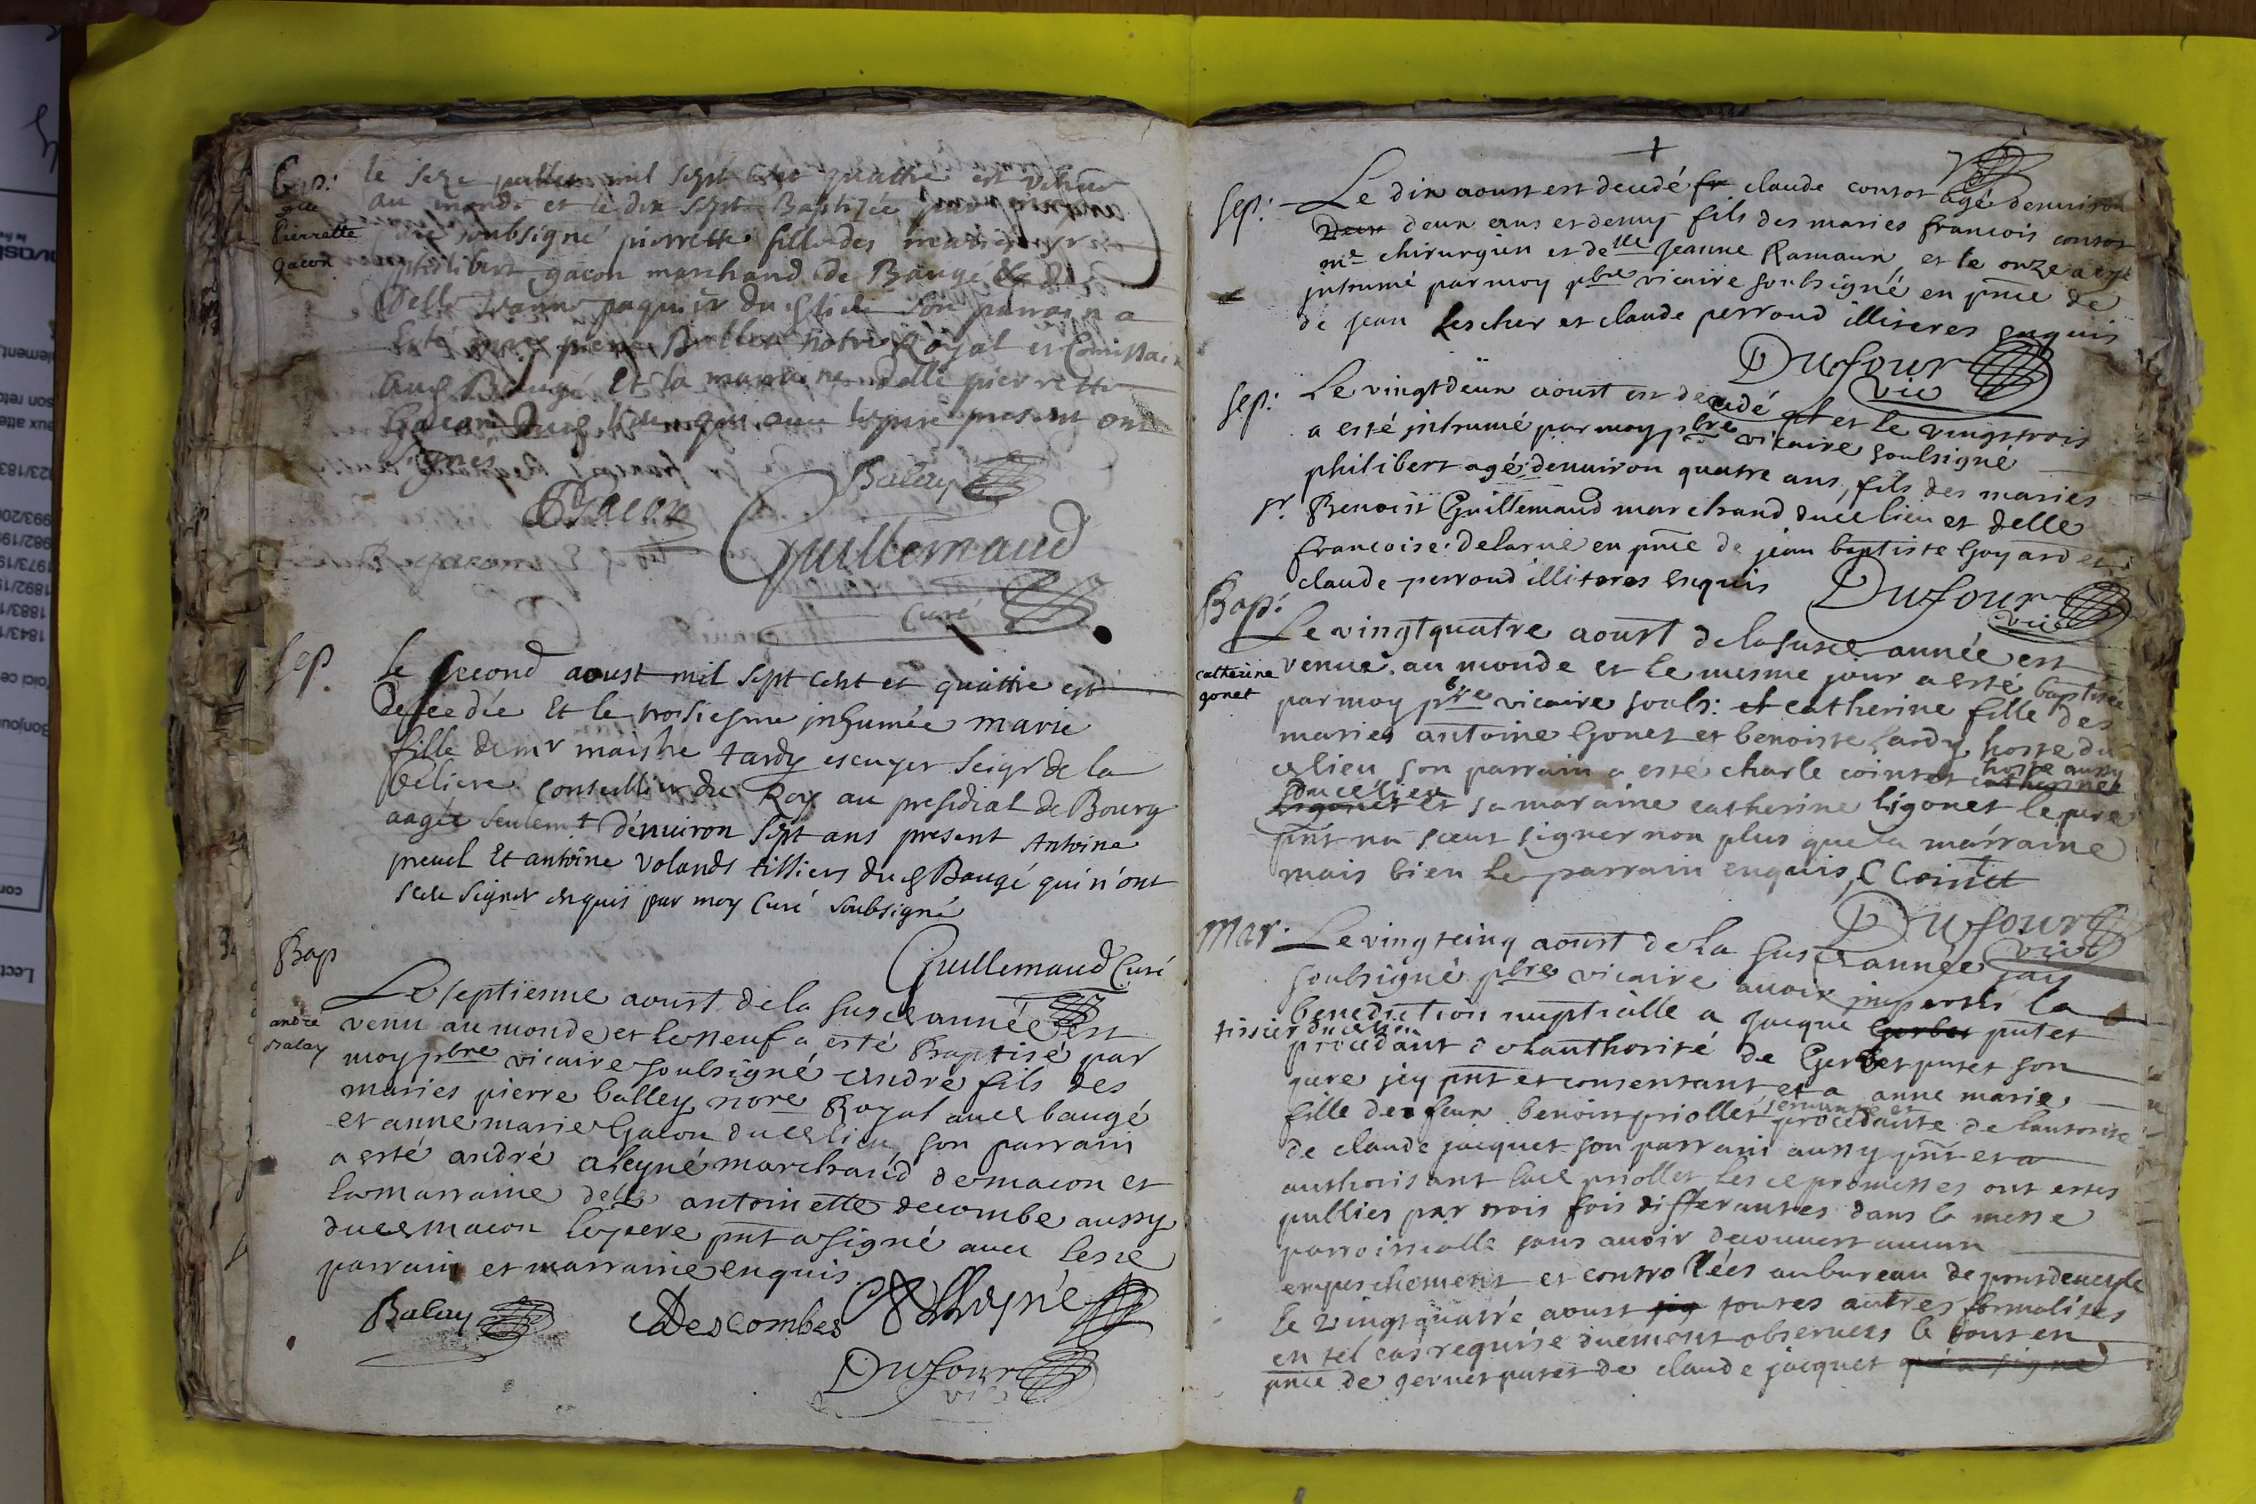 Bap.
Pierrette
gacon
le seze juillet mil sept cent quattre est venue
au monde et le dix sept Baptizée par
curé soubsigné pierrette fille des mariés sr
philibert gacon marchand de Baugé et
delle Jeanne paquier dud lieu son parrain a
Esté pierre Balley notre Royal et Comissaire
aud Baugé Et la marraine delle pierrette
Gacon dud lieu qui avec le pere present ont
signes
Balay
Gacon
Guillemaud
Curé
sep.
le second aoust mil sept cent et quattre est
decedée Et le troisiesme inhumée marie
fille de mr maistre tardy escuyer seigr de la
beliere conseillier du Roy au presidial de Bourg
aagée seulemt d'environ sept ans present Antoine
preuel Et antoine volands tissiers dud Baugé qui n'ont
sceu signer enquis par moy Curé soubsigné
Guillemaud Curé
Bap
andre
Balay
Le septiesme aoust de la susd année est
venu au monde et le neuf a esté Baptisé par
moy pbre vicaire soubsigné andre fils des
maries pierre balley nore Royal aud baugé
et anne marie Gacon dud lieu son parrain
a esté andré aleyné marchand de macon et
la marraine delle antoinette decombe aussy
dud macon le pere pnt a signé avec lesd
parrain et marraine enquis
Balay
Descombes
Alleyné
Dufour
vic
sep.
Le dix aoust est decedé fr claude consot agé denuiron
deux deux ans et demy fils des maries francois consot
me chirurgien et delle Jeanne Ramaux et le onze a esté
inhumé par moy pbre vicaire soubsigné en pnce de
de jean Lescher et claude perroud illiteres enquis
Dufour
vic
sep.
Le vingtdeux aoust est decedé et le vingttrois
a esté inhumé par moy pbre vicaire soubsigné
philibert agé denuiron quatre ans, fils des maries
sr. Benoist Guillemaud marchand dud lieu et delle
francoise delarue en pnce de jean baptiste Goyard et
claude perroud illiteres enquis
Dufour
vic
Bap.
catherine
gonet
Le vingtquatre aoust de la susd année est
venue au monde et le mesme jour a esté baptisée
par moy pbre vicaire soubs: et catherine fille des
maries antoine Gonet et benoiste Lardy hoste du
d lieu son parrain a esté charle cointet hoste aussy
dud lieu
et sa maraine catherine ligonet le pere
pnt na sceut signer non plus que la marraine
mais bien le parrain enquis, C Cointet
Dufour
vic
mar.
Le vingtcinq aoust de la susd année jay
soubsigné pbre vicaire avoir imparti la
benediction nuptialle a jacque putet
tissier dud lieu
procedant de lauthorité de Gerbet putet son
pere jcy pnt et consentant et a anne marie
fille de feu benoist priollet servante et procedante de lautorité
de claude jacquet son parrain aussy pnt et a
authorisant lad priollet les d promesses ont estes
publiés par trois fois differantes dans la messe
parroissialle sans avoir decouvert aucun
empeschement et controllées au bureau de pontdeuesle
le vingtquatre aoust toutes autres formalites
en tel cas requise duement observees le tout en
pnce de gerbet putet de claude jacquet qui a signe